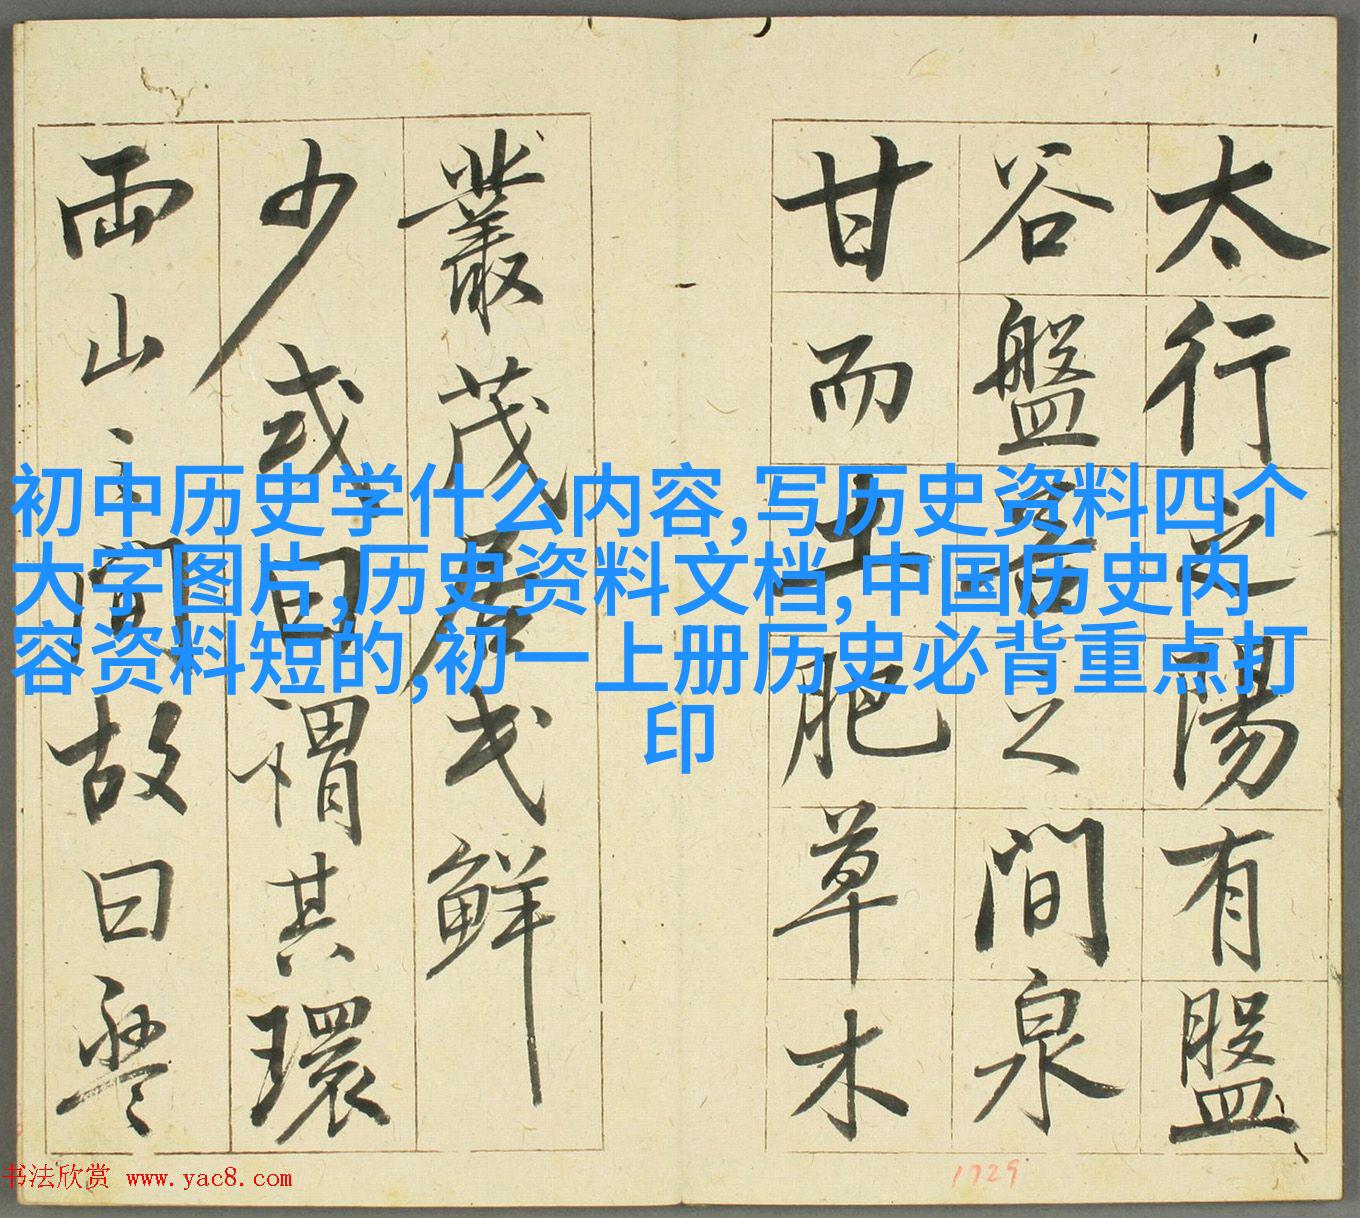 太行之陽有盤
谷盤谷之間泉
甘而土肥草木
叢茂居民鮮
少或曰謂其環
兩山之間故曰盤
初中历史学什么内容,写历史资料四个
大字图片,历史资料文档,中国历史内
容资料短的,初一上册历史必背重点打
印
书法欣赏 www.yac8.com
1729